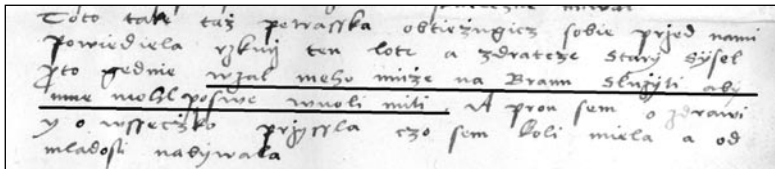 Toto take taž petrasska obtiežugicz sobie przed nami
powiediela rzkucz ten lotr a zdrateze Stary Sysel
pto gednie wzal meho muže na Brann Služyti aby
mne mohl po swe wuoli miti. A pron sem o zdrawi
y o wsseczko przyssla czo sem koli miela a od
mladosti nabywala